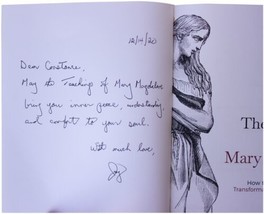 12/14/20
Dear Constance,
May the Teachings of Mary Magdalene
bring you inner peace, understanding
and comfort to your soul.
With much love,
Joy
The
Mary
How
Transforma